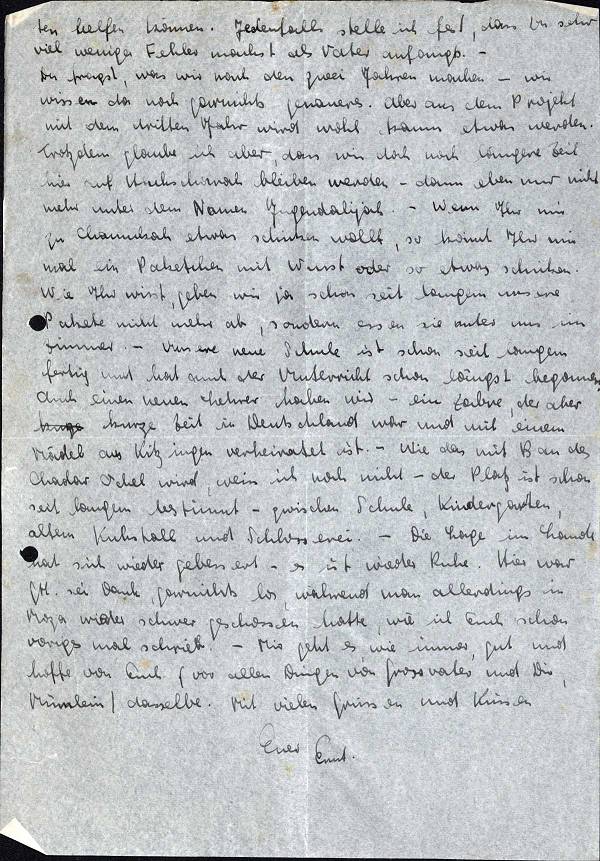 ten helfen können. Jedenfalls stelle ich fest, dass Du sehr
viel weniger Fehler machst als Vater anfangs. -
Du fragst, was wir nach den zwei Jahren machen - wir
wissen da noch garnichts genaueres. Aber aus dem Projekt
mit dem dritten Jahr wird wohl kaum etwas werden.
Trotzdem glaube ich aber, dass wir doch noch längere Zeit
hier auf bleiben werden - dann eben nur nicht
mehr unter dem Namen Jugendalijah. - Wenn Ihr mir
zu Channukah etwas schicken wollt, so könnt Ihr mir
mal ein Paketchen mit Wurst oder so etwas schicken.
Wie Ihr wisst, geben wir ja schon seit langem unsere
Pakete nicht mehr ab, sondern essen sie unter uns im
Zimmer. - Unsere neue Schule ist schon seit langem
fertig und hat auch der Unterricht schon längst begonnen
Auch einen neuen Lehrer haben wir - ein Zabre, der aber
kurze Zeit in Deutschland war und mit einem
Mädel aus Kitzingen verheiratet ist. - Wie das mit Bau des
Chadar Ochel wird, weis ich noch nicht - der Platz ist schon
seit langem bestimmt - zwischen Schule, Kindergarten,
altem Kuhstall und Schlosserei. - Die Lage im Lande
hat sich wieder gebessert - es ist wieder Ruhe. Hier war
G.s. sei Dank, garnichts los, während man allerdings in
Moza wieder schwer geschossen hatte, wie ich Euch schon
voriges mal schrieb. - Mir geht es wie immer, gut und
hoffe von Euch (vor allen Dingen von Grossvater und Dir,
Mümlein) dasselbe. Mit vielen Grüssen und Küssen
Euer Ernst.